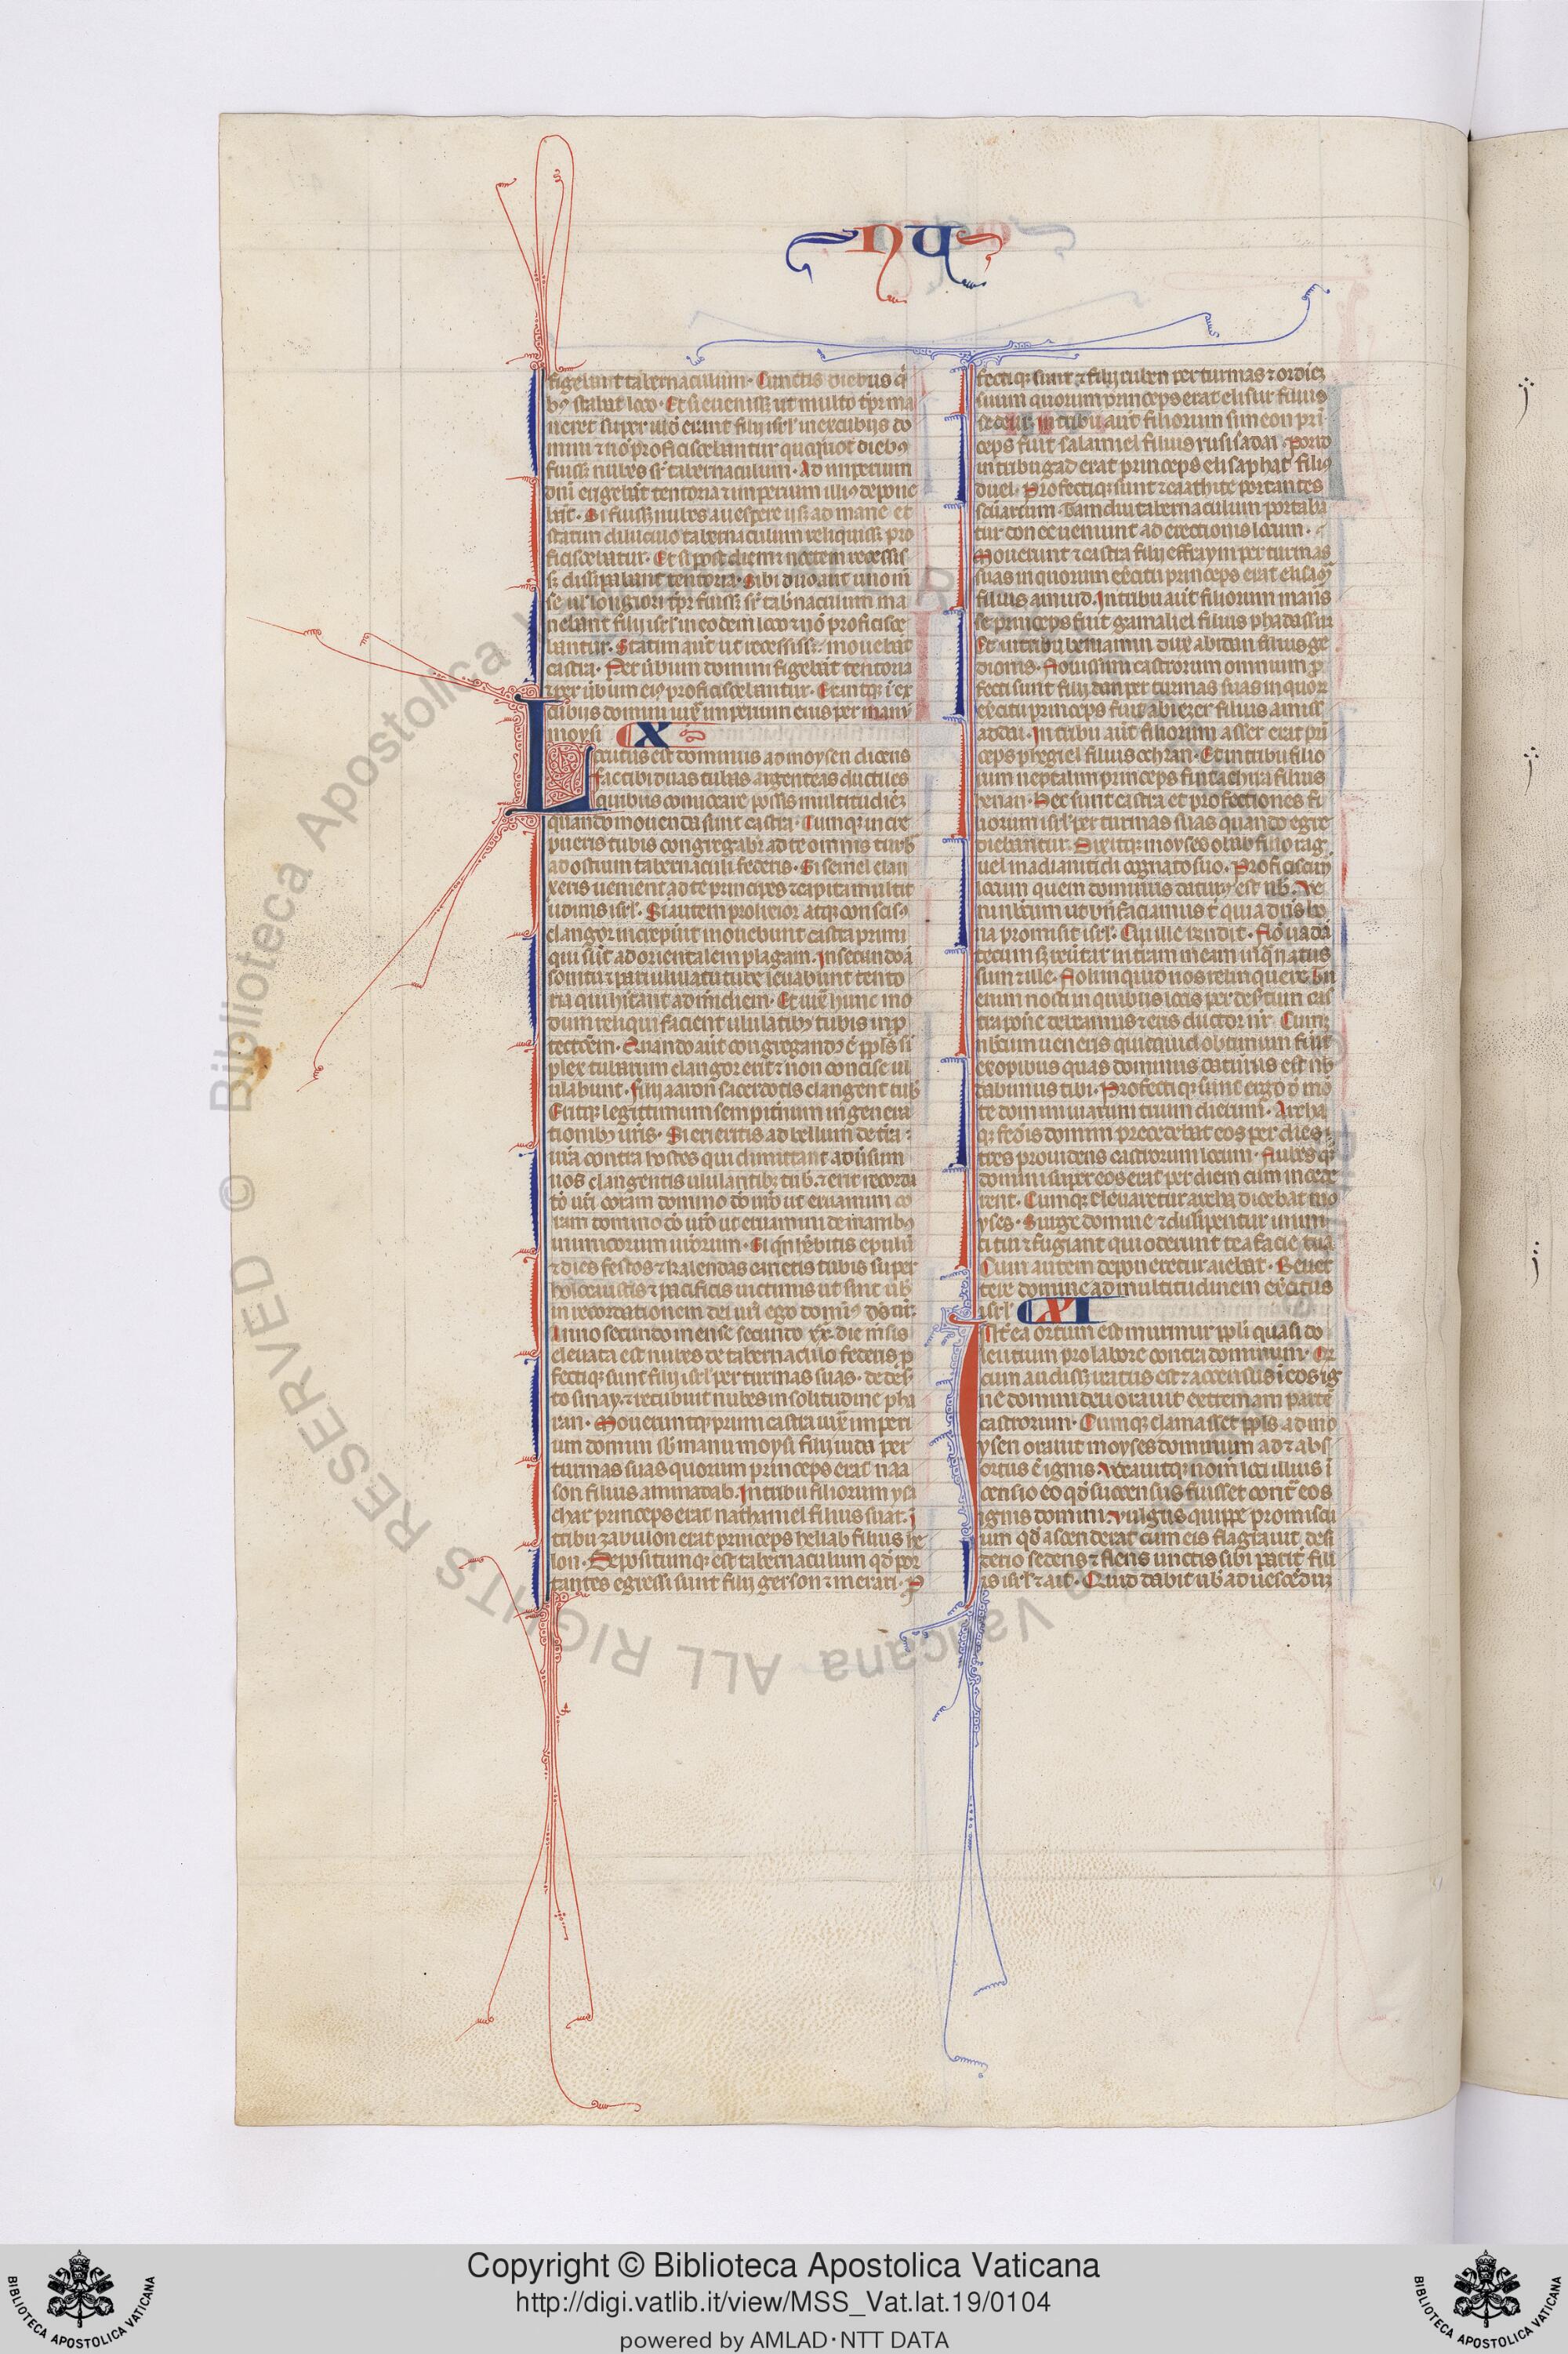 NU
figebant tabernaculum. Cunctis diebus q̄
b⁹ stabat loco. Et si eveniss; ut multo tp̄r ma
neret super illḋ erunt filij isrl̄ in excubijs do
mini ⁊ nō proficiscebantur quotquot dieb⁹
fuiss; nubes sr̄ tabernaculum. Ad imperium
dn̄i erigebāt tentoria ⁊ imperium illi⁹ depone
bāt. Si fuiss; nubes a uespere usq; ad mane et
statim diluculo tabernaculum reliquiss; pro
ficiscebātur. Et si post diem ⁊ noctem recessis
s; dissipabant tentoria.
nebant filij isrl̄ in eodem loco ⁊ nō proficisce
bantur. Statim aūt ut recessiss; mouebāt
castra. Per ūbum domini figebāt tentoria
⁊ per ūbum ei⁹ proficiscebantur. Erantq; ī ex
cubijs domini iux̄ imperium eius per manū
moysi X
Locutus est dominus ad moysen dicens
fac tibi duas tubas argenteas ductiles
quibus conuocare possis multitudinē
quando mouenda sunt castra. Cumq; incre
pueris tubis congregabr̄ ad te omnis turb̄
ad ostium tabernaculi federis. Si semel clan
xeris uenient ad te principes ⁊ capita multit
udinis isrl̄. Si autem prolixior atq; concis⁹
clangor increpūit mouebunt castra primi
qui sūt ad orientalem plagam. In secundo ā
sonitu ⁊ pari ululatu tube leuabunt tento
ria qui hītant ad m̄idiem. Et iux̄ hunc mo
dum reliqui facient ululātib⁹ tubis in p̄
fectōem. Quando aūt congregand⁹ ē ppl̄s si
plex tubarum clangor erit ⁊ non concise ul
ulabunt. Filij aaron sacerdotis clangent tub̄
Eritq; legittimum sempit̄num in genera
tionib⁹ ur̄is. Si exieritis ad bellum de tr̄a
ur̄a contra hostes qui dimicant aduīsum
uos clangentis ululantib; tub̄. ⁊ erit recorda
nimicorum ur̄orum. Si qn̄ hēbitis epulū
⁊ dies festos ⁊ kalendas canetis tubis super
holocaustis ⁊ pacificis uictimis ut sint uob̄
in recordationem dei ur̄i ego domin⁹ ds̄ ur̄.
Anno secundo mense secundo xx. die m̄sis
eleuata est nubes de tabernaclo federis p̄
fectiq; sunt filij isrl̄ per turmas suas. de des̄
to sinay. ⁊ recubuit nubes in solitudine pha
ran. Moueruntq; primi castra iux̄ imperi
um domini in manu moysi filij iuda per
turmas suas quorum princeps erat naa
son filius aminadab. In tribu filiorum ysa
char princeps erat nathanel filius suar. i
tribu zabulon erat princeps heliab filius he
lon. Depositumq; est tabernaculum qd̄ por
tantes egressi sunt filij gerson ⁊ merari. P̄
fectiq; sunt ⁊ filij ruben per turmas ⁊ ordinē
suum quorum princeps erat elisur filius
sedeur. In tribu aūt filiorum simeon prī
ceps fuit salamiel filius surisadai. Porro
in tribu gad erat princeps elisaphat fili⁹
duel. Profectiq; sunt ⁊ caathite portantes
sc̄uarium. Tamdiu tabernaculum portaba
tur donec uenirent ad erectionis locum.
Mouerunt ⁊ castra filij effraym per turmas
suas in quorum ex̄citu princeps erat elisam̄
filius amiud. In tribu aūt filiorum manas
se princeps fuit gamaliel filius phadassur
Et in tribu beniamin dux abidan filius ge
deonis. Nouissimi castrorum omnium p̄
fecti sunt filij dan per turmas suas in quor̄
ex̄citu princeps fuit abiezer filius amisa
addai. In tribu aūt filiorum asser erat prī
ceps phegiel filius ochran. Et in tribu filio
rum neptalim princeps fuit achira filius
henan. Hec sunt castra et profectiones fi
liorum isrl̄ per turmas suas quando egre
diebantur. Dixitq; moyses obab filio rag
uel madianiti cognato suo. Proficiscim̄
ad locum quem dominus datur⁹ est nob̄. Ve
ni nobcum ut bn̄ faciamus t̄ quia dn̄s bo
na promisit isrl̄. Cui ille rendit. Nō uadā
tecum s; reūtar in terram meam in qua natus
sum. ⁊ ille. Noli inquid nos relinquere. tu
enim nosti in quibus locis per des̄tum cas
tra pon̄e debeamus ⁊ eris ductor nr̄. Cumq;
nobcum ueneris quicquid optimum fu̅it
ex opibus quas dominus daturus est nob̄
dabimus tibi. Profectiq; sunt ergo d̄ mō
te domini uiam trium dierum. Archa
q; fed̄is domini precedebat eos per dies
tres prouidens castrorum locum. Nubes q;
domini super eos erat per diem cum incede
rent. Cumq; eleuaretur archa dicebat mo
yses. Surge domine ⁊ dissipentur inimi
ci tui ⁊ fugiant qui oderunt te a facie tua
Cum autem deponeretur aiebat. Reuer
tere domine ad multitudinem ex̄citus
isrl̄ XI
Int̄ea ortum est murmur ppl̄i quasi do
lentium pro labore contra dominum. Qd̄
cum audiss; iratus est ⁊ accensus ī eos ig
nis domini deuorauit extremam partē
castrorum. Cumq; clamasset ppl̄s ad mo
ysen orauit moyses dominum ad ⁊ abs
ortus ē ignis. Vocauitq; nom̄ loci illius ī
censio eo qd̄ succensus fuisset cont̄ eos
ignis domini. Vulgus quippe promiscu
um qd̄ ascenderat cum eis flagrauit desi
derio sedens ⁊ flens iunctis sibi parit̄ fili
is isrl̄ ⁊ ait. Quis dabit nob̄ ad uescendū
© Biblioteca Apostolica Vaticana ALL RIGHTS RESERVED
Copyright © Biblioteca Apostolica Vaticana
http://digi.vatlib.it/view/MSS_Vat.lat.19/0104
powered by AMLAD·NTT DATA
BIBLIOTECA APOSTOLICA VATICANA
BIBLIOTECA APOSTOLICA VATICANA